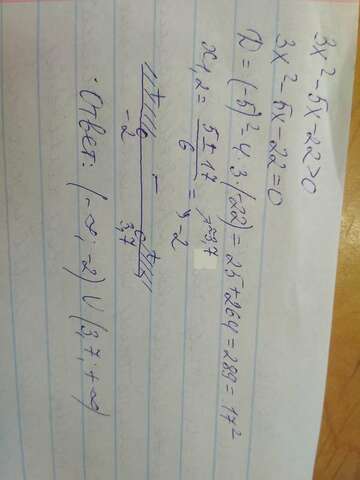 3x² - 5x - 22 > 0
3x² - 5x - 22 = 0
D = (-5)² - 4·3·(-22) = 25 + 264 = 289 = 17²
x₁,₂ = (5 ± 17)/6 = 3,7; -2
+ - +
-2 3,7
Ответ: (-∞; -2) ∪ (3,7; +∞)